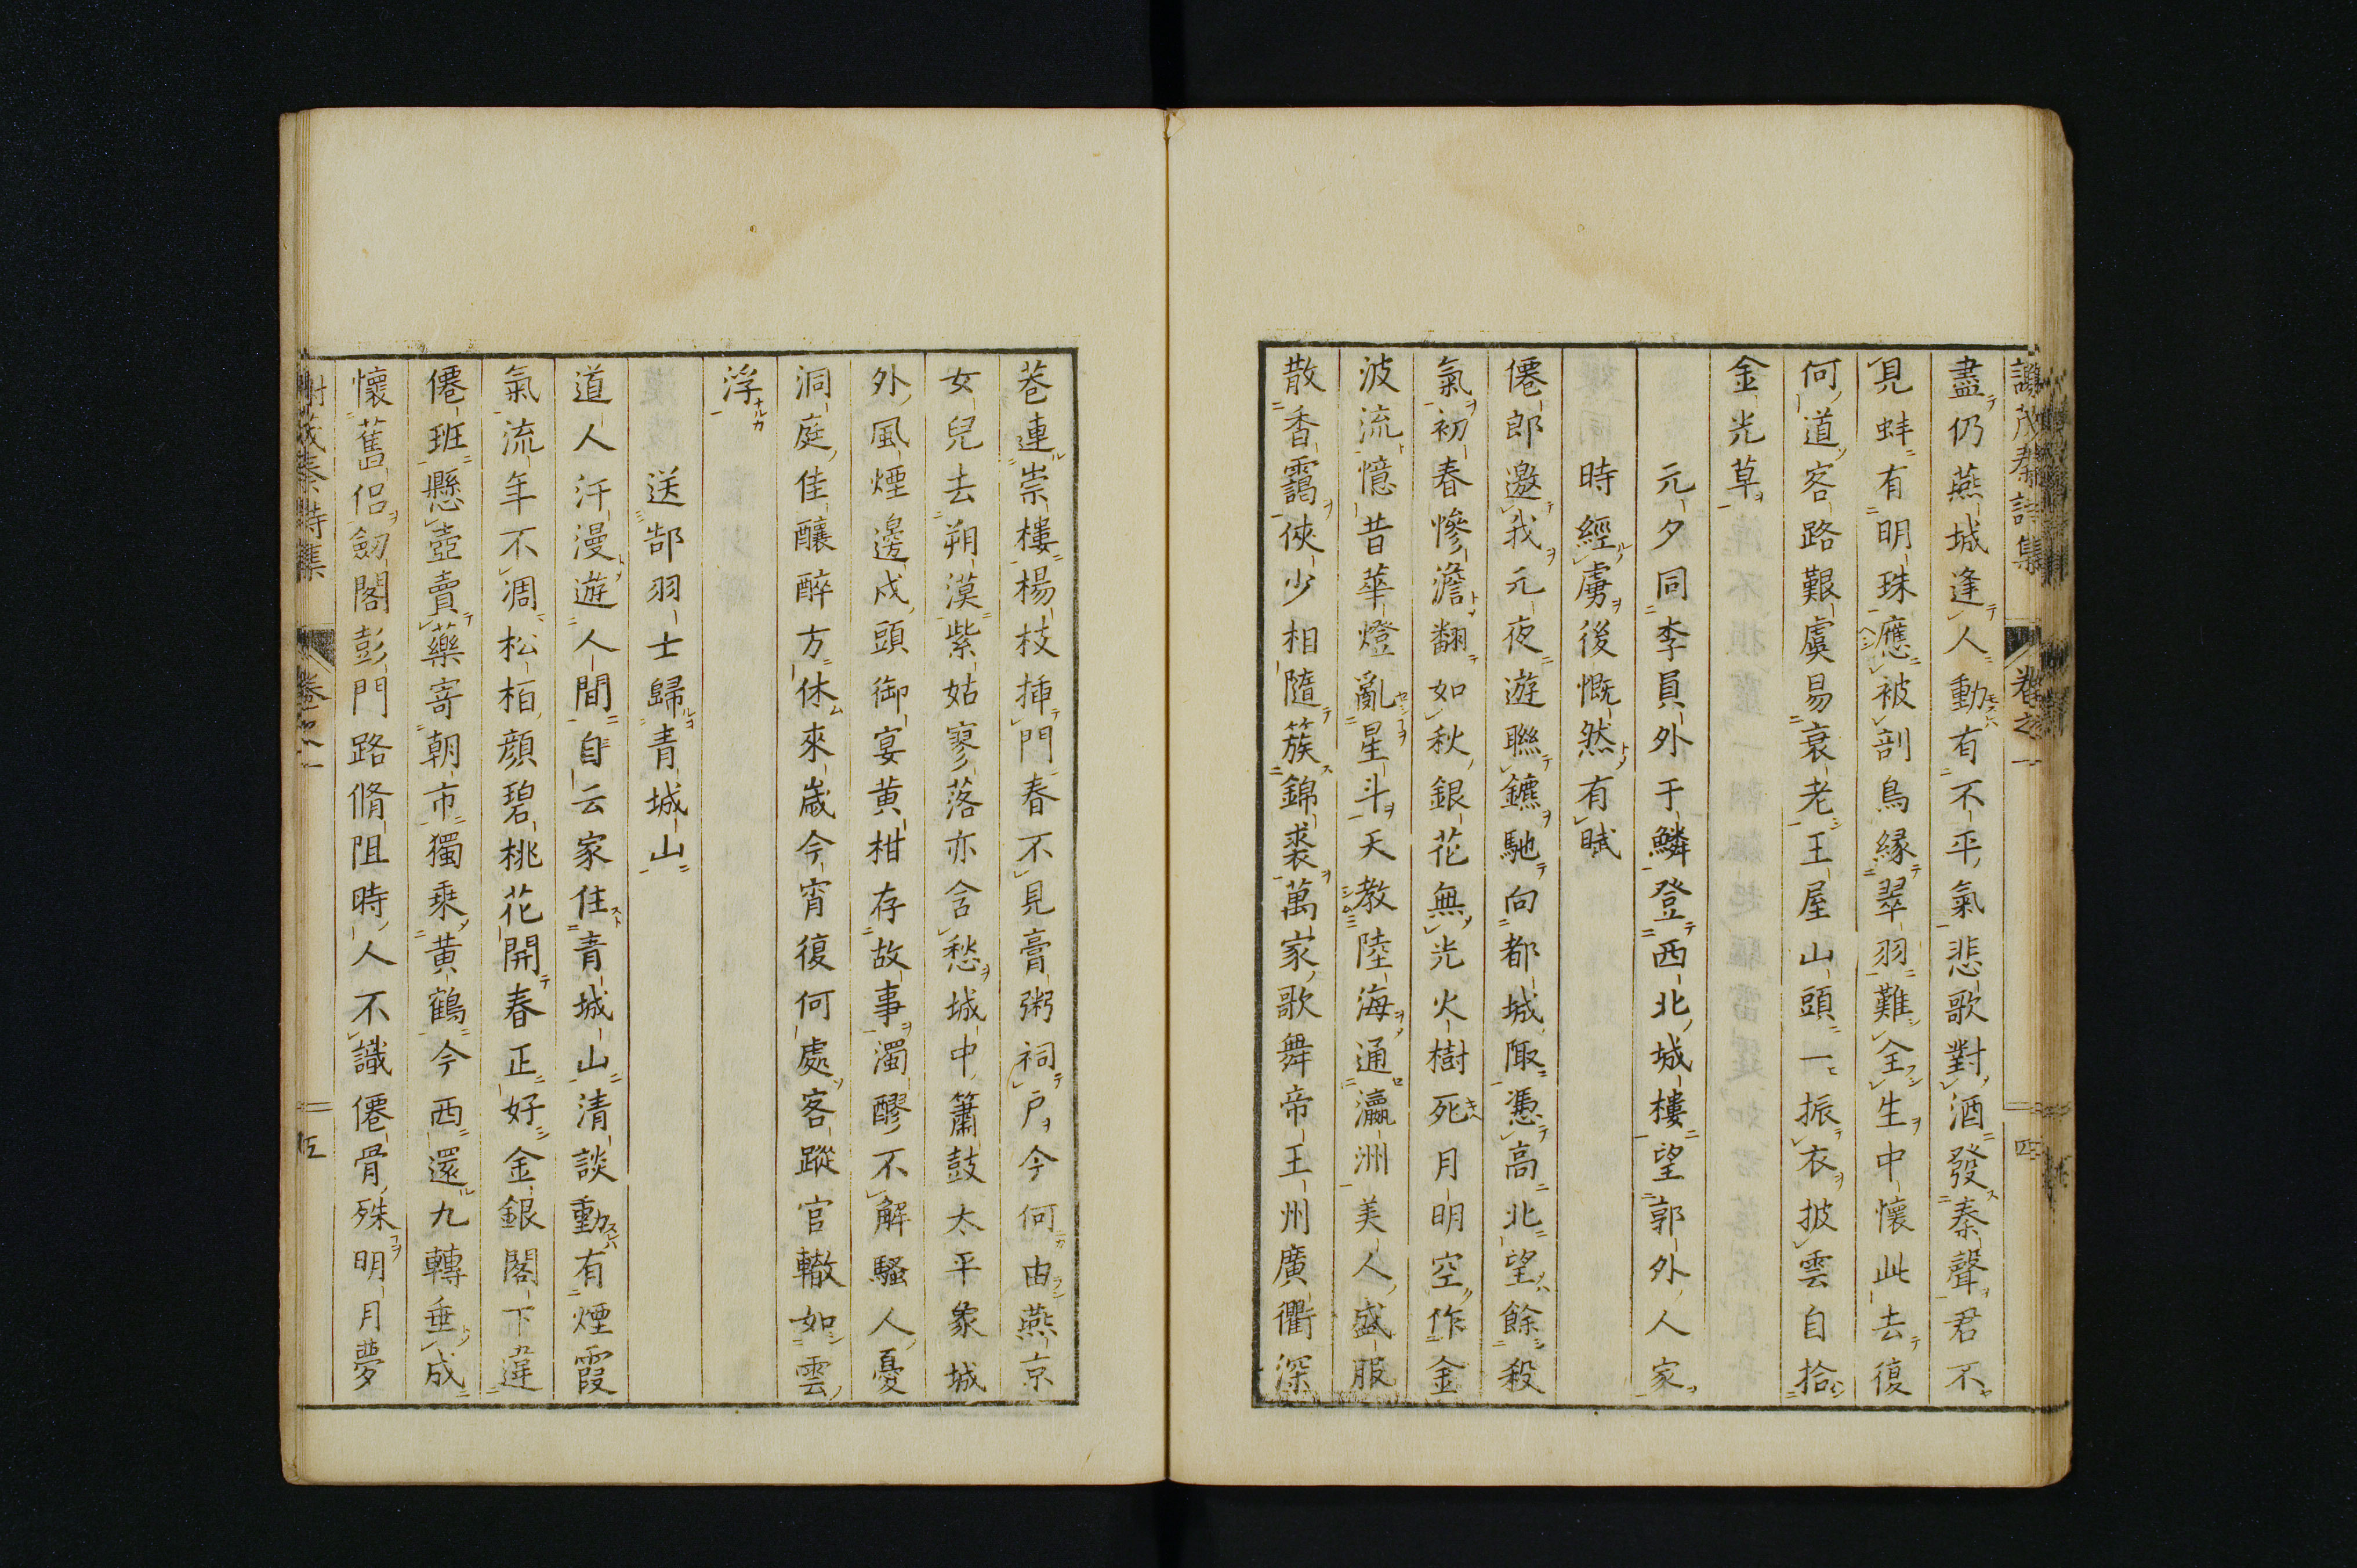 謝茂秦詩集 卷之一 四
盡仍燕城逢人動有不平氣悲歌對酒發秦聲君不
見蚌有明珠應被剖鳥縁翠羽難全生中懷此去復
何道客路艱虞易衰老王屋山頭一振衣披雲自拾
金光草
元夕同李員外于鱗登西北城樓望郭外人家
時經虜後慨然有賦
僊郎邀我元夜遊聯鑣馳向都城陬憑高北望餘殺
氣初春慘澹翻如秋銀花無光火樹死月明空作金
波流憶昔華燈亂星斗天教陸海通瀛洲美人盛服
散香靄俠少相隨簇錦裘萬家歌舞帝王州廣衢深
巷連崇樓楊枝揷門春不見膏粥祠戶今何由燕京
女兒去朔漠紫姑寥落亦含愁城中簫鼓太平象城
外風煙邊戍頭御宴黄柑存故事濁醪不解騷人憂
洞庭佳釀醉方休來歲今宵復何處客蹤官轍如雲
浮
送郜羽士歸青城山
道人汗漫遊人間自云家住青城山清談動有煙霞
氣流年不凋松栢顔碧桃花開春正好金銀閣下違
僊班懸壺賣藥寄朝市獨乘黄鶴今西還九轉垂成
懷舊侶劒閣彭門路脩阻時人不識僊骨殊明月夢
謝茂秦詩集 卷之一 五